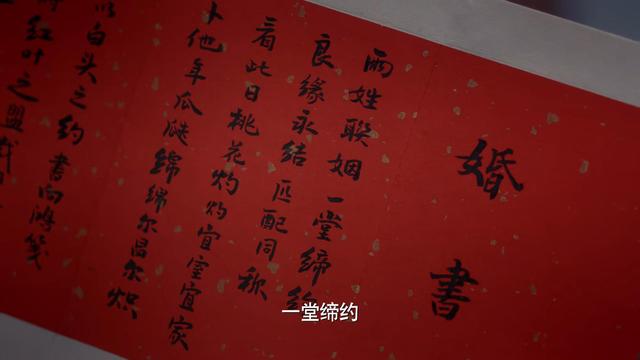 婚書
兩姓联姻一堂締約
良缘永结匹配同称
看此日桃花灼灼宜室宜家
卜他年瓜瓞綿綿尔昌尔炽
以白头之约書向鴻笺
红叶之盟载
一堂缔约